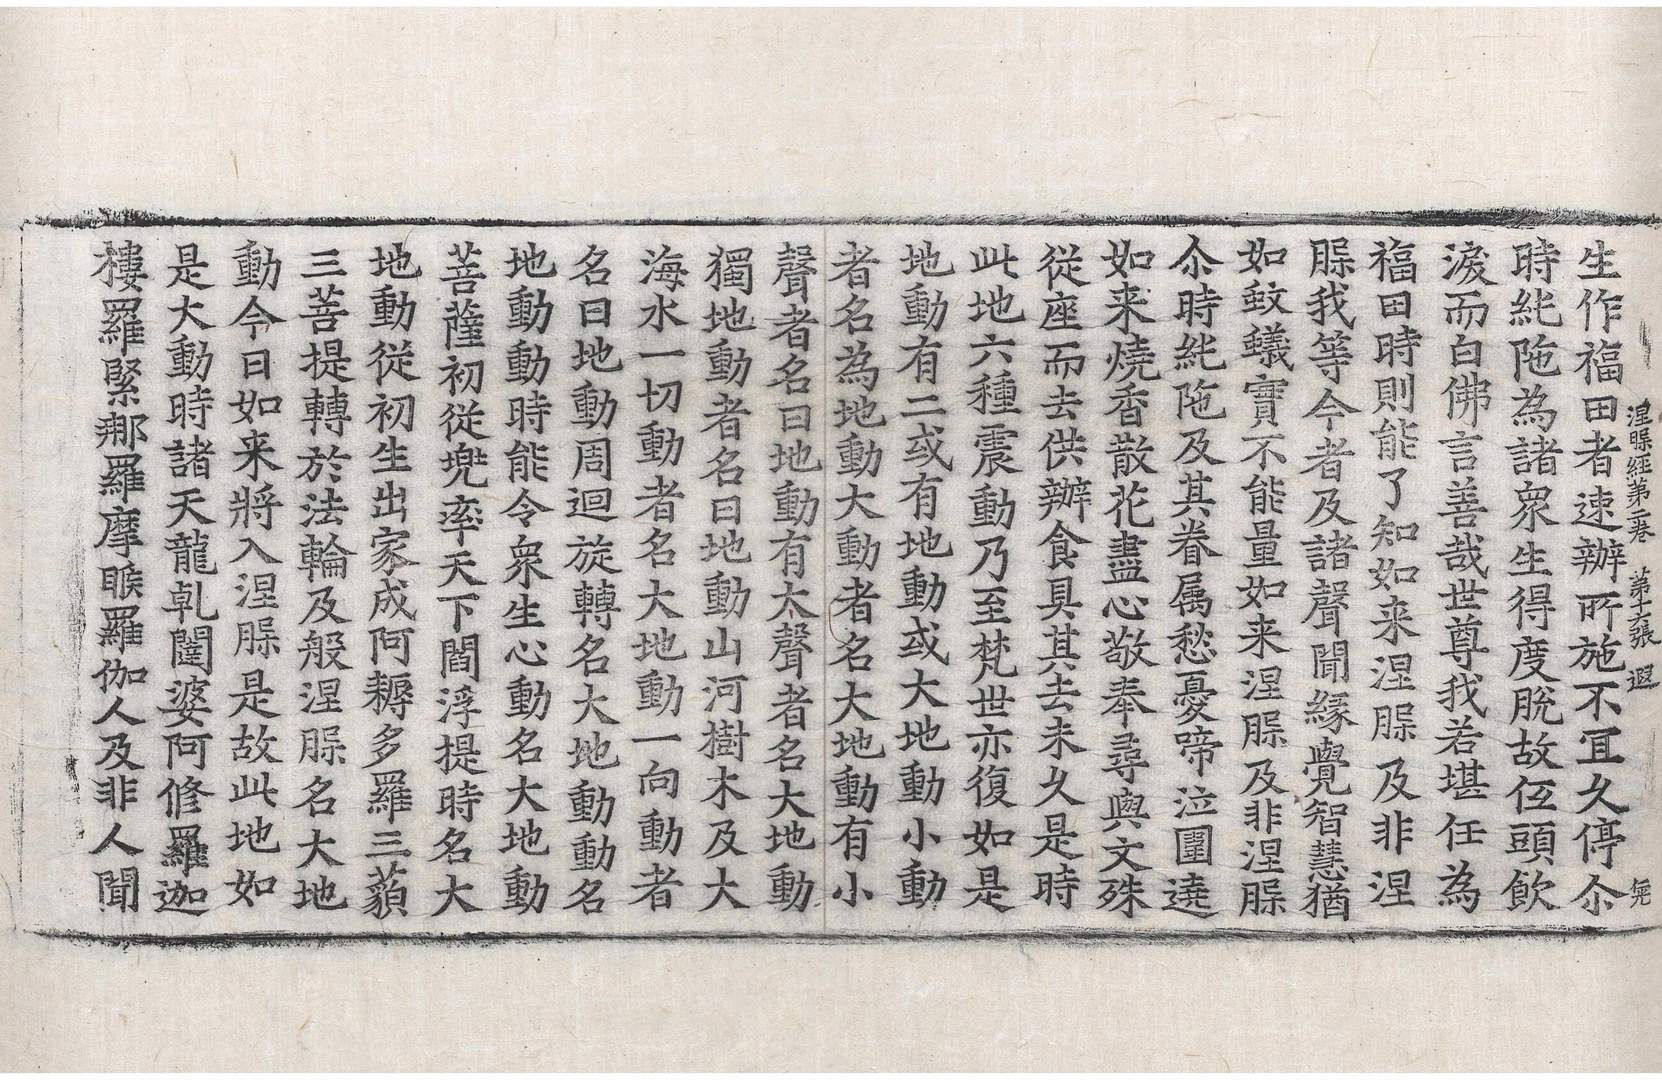 涅槃経第二卷 第十六張 遐
生作福田者速辦所施不冝乆停尒
時純陁為諸衆生得度脫故伍頭飲
淚而白佛言善哉世尊我若堪任為
福田時則能了知如来涅槃及非涅
槃我等今者及諸聲聞縁覺智慧猶
如蚊蟻實不能量如来涅槃及非涅槃
尒時純陁及其眷属愁憂啼泣圍遶
如来燒香散花盡心敬奉尋與文殊
從座而去供辦食具其去未乆是時
此地六種震動乃至梵世亦復如是
地動有二或有地動或大地動小動
者名為地動大動者名大地動有小
聲者名曰地動有大聲者名大地動
獨地動者名曰地動山河樹木及大
海水一切動者名大地動一向動者
名曰地動周迴旋轉名大地動動名
地動動時能令衆生心動名大地動
菩薩初從兠率天下閻浮提時名大
地動從初生出家成阿耨多羅三藐
三菩提轉於法輪及般涅槃名大地
動今日如来將入涅槃是故此地如
是大動時諸天龍乹闥婆阿修羅迦
樓羅緊那羅摩睺羅伽人及非人聞